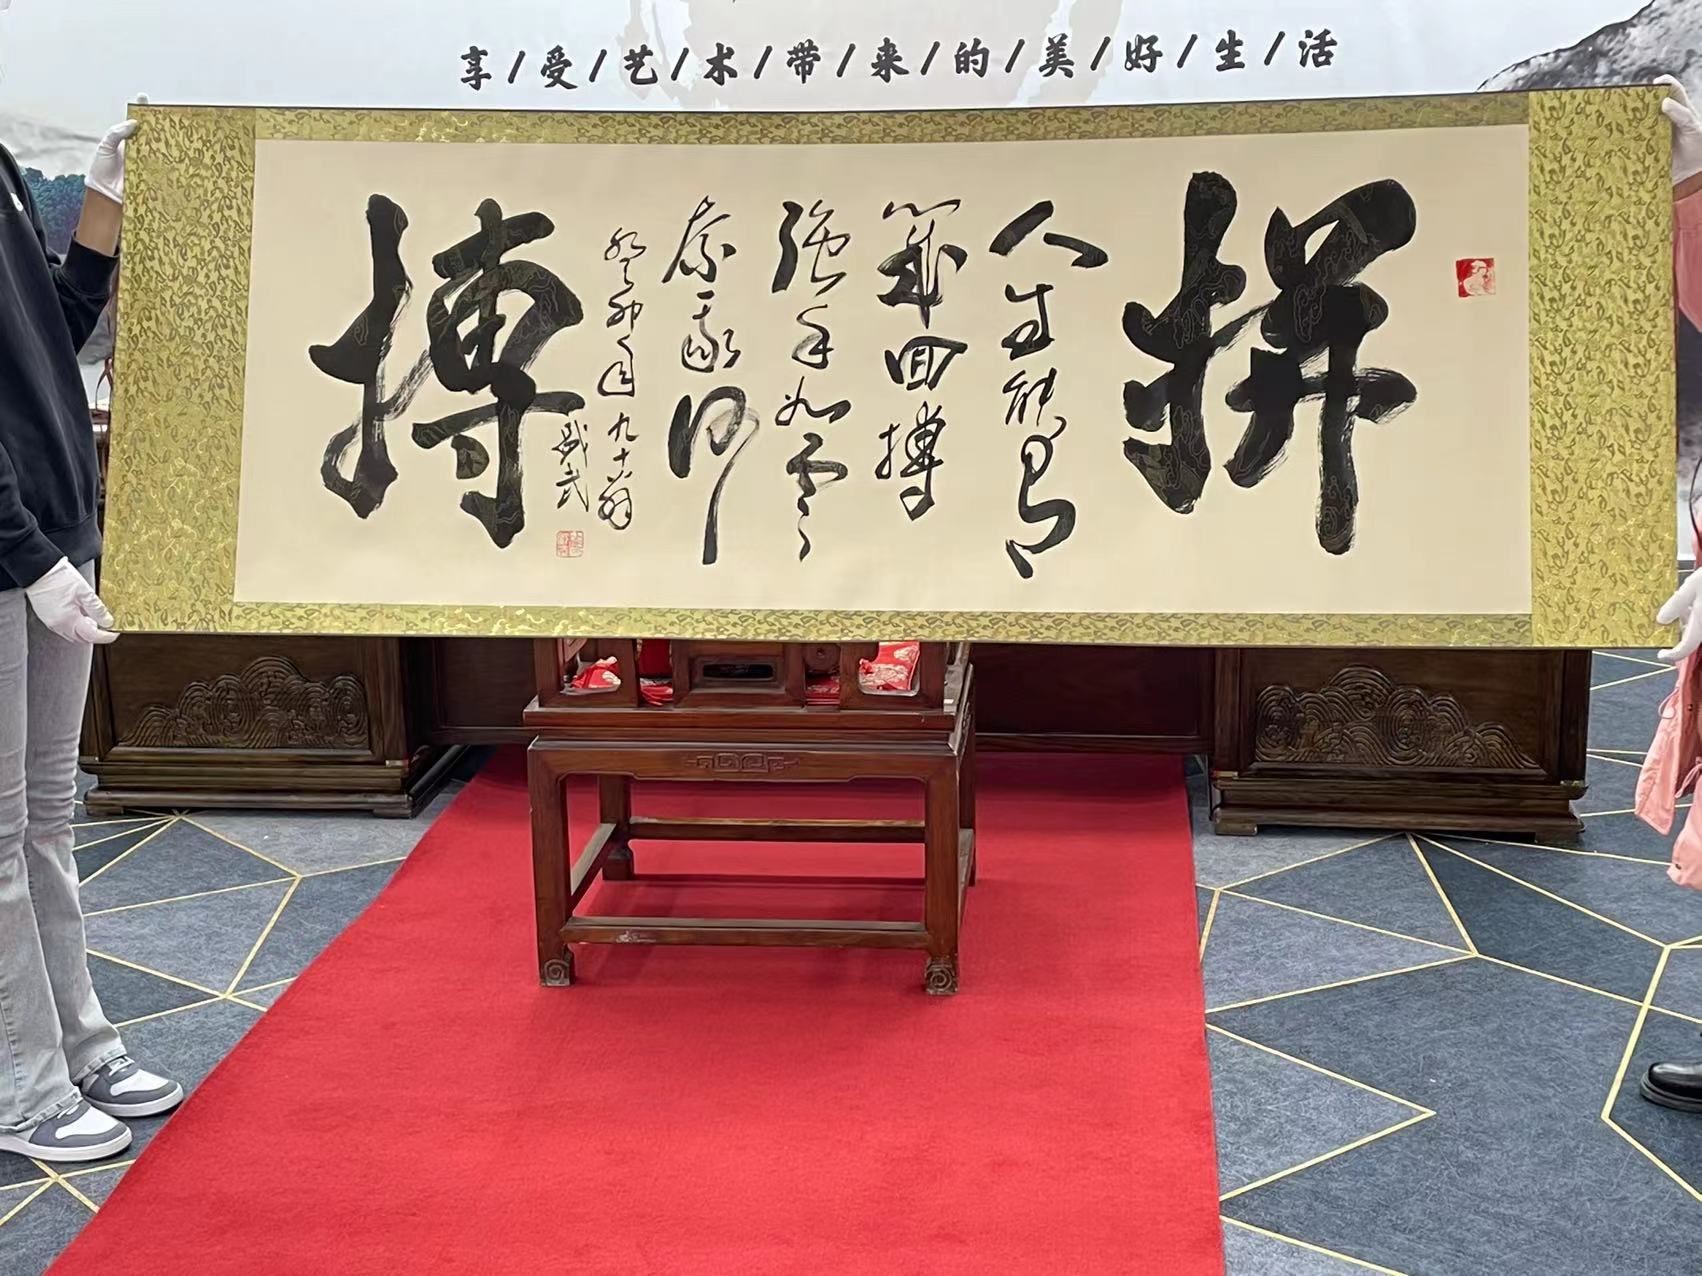 享/受/艺/术/带/来/的/美/好/生/活
拼
人生能有
几回搏
强手如云
奈我何
癸卯年九十翁
武
搏